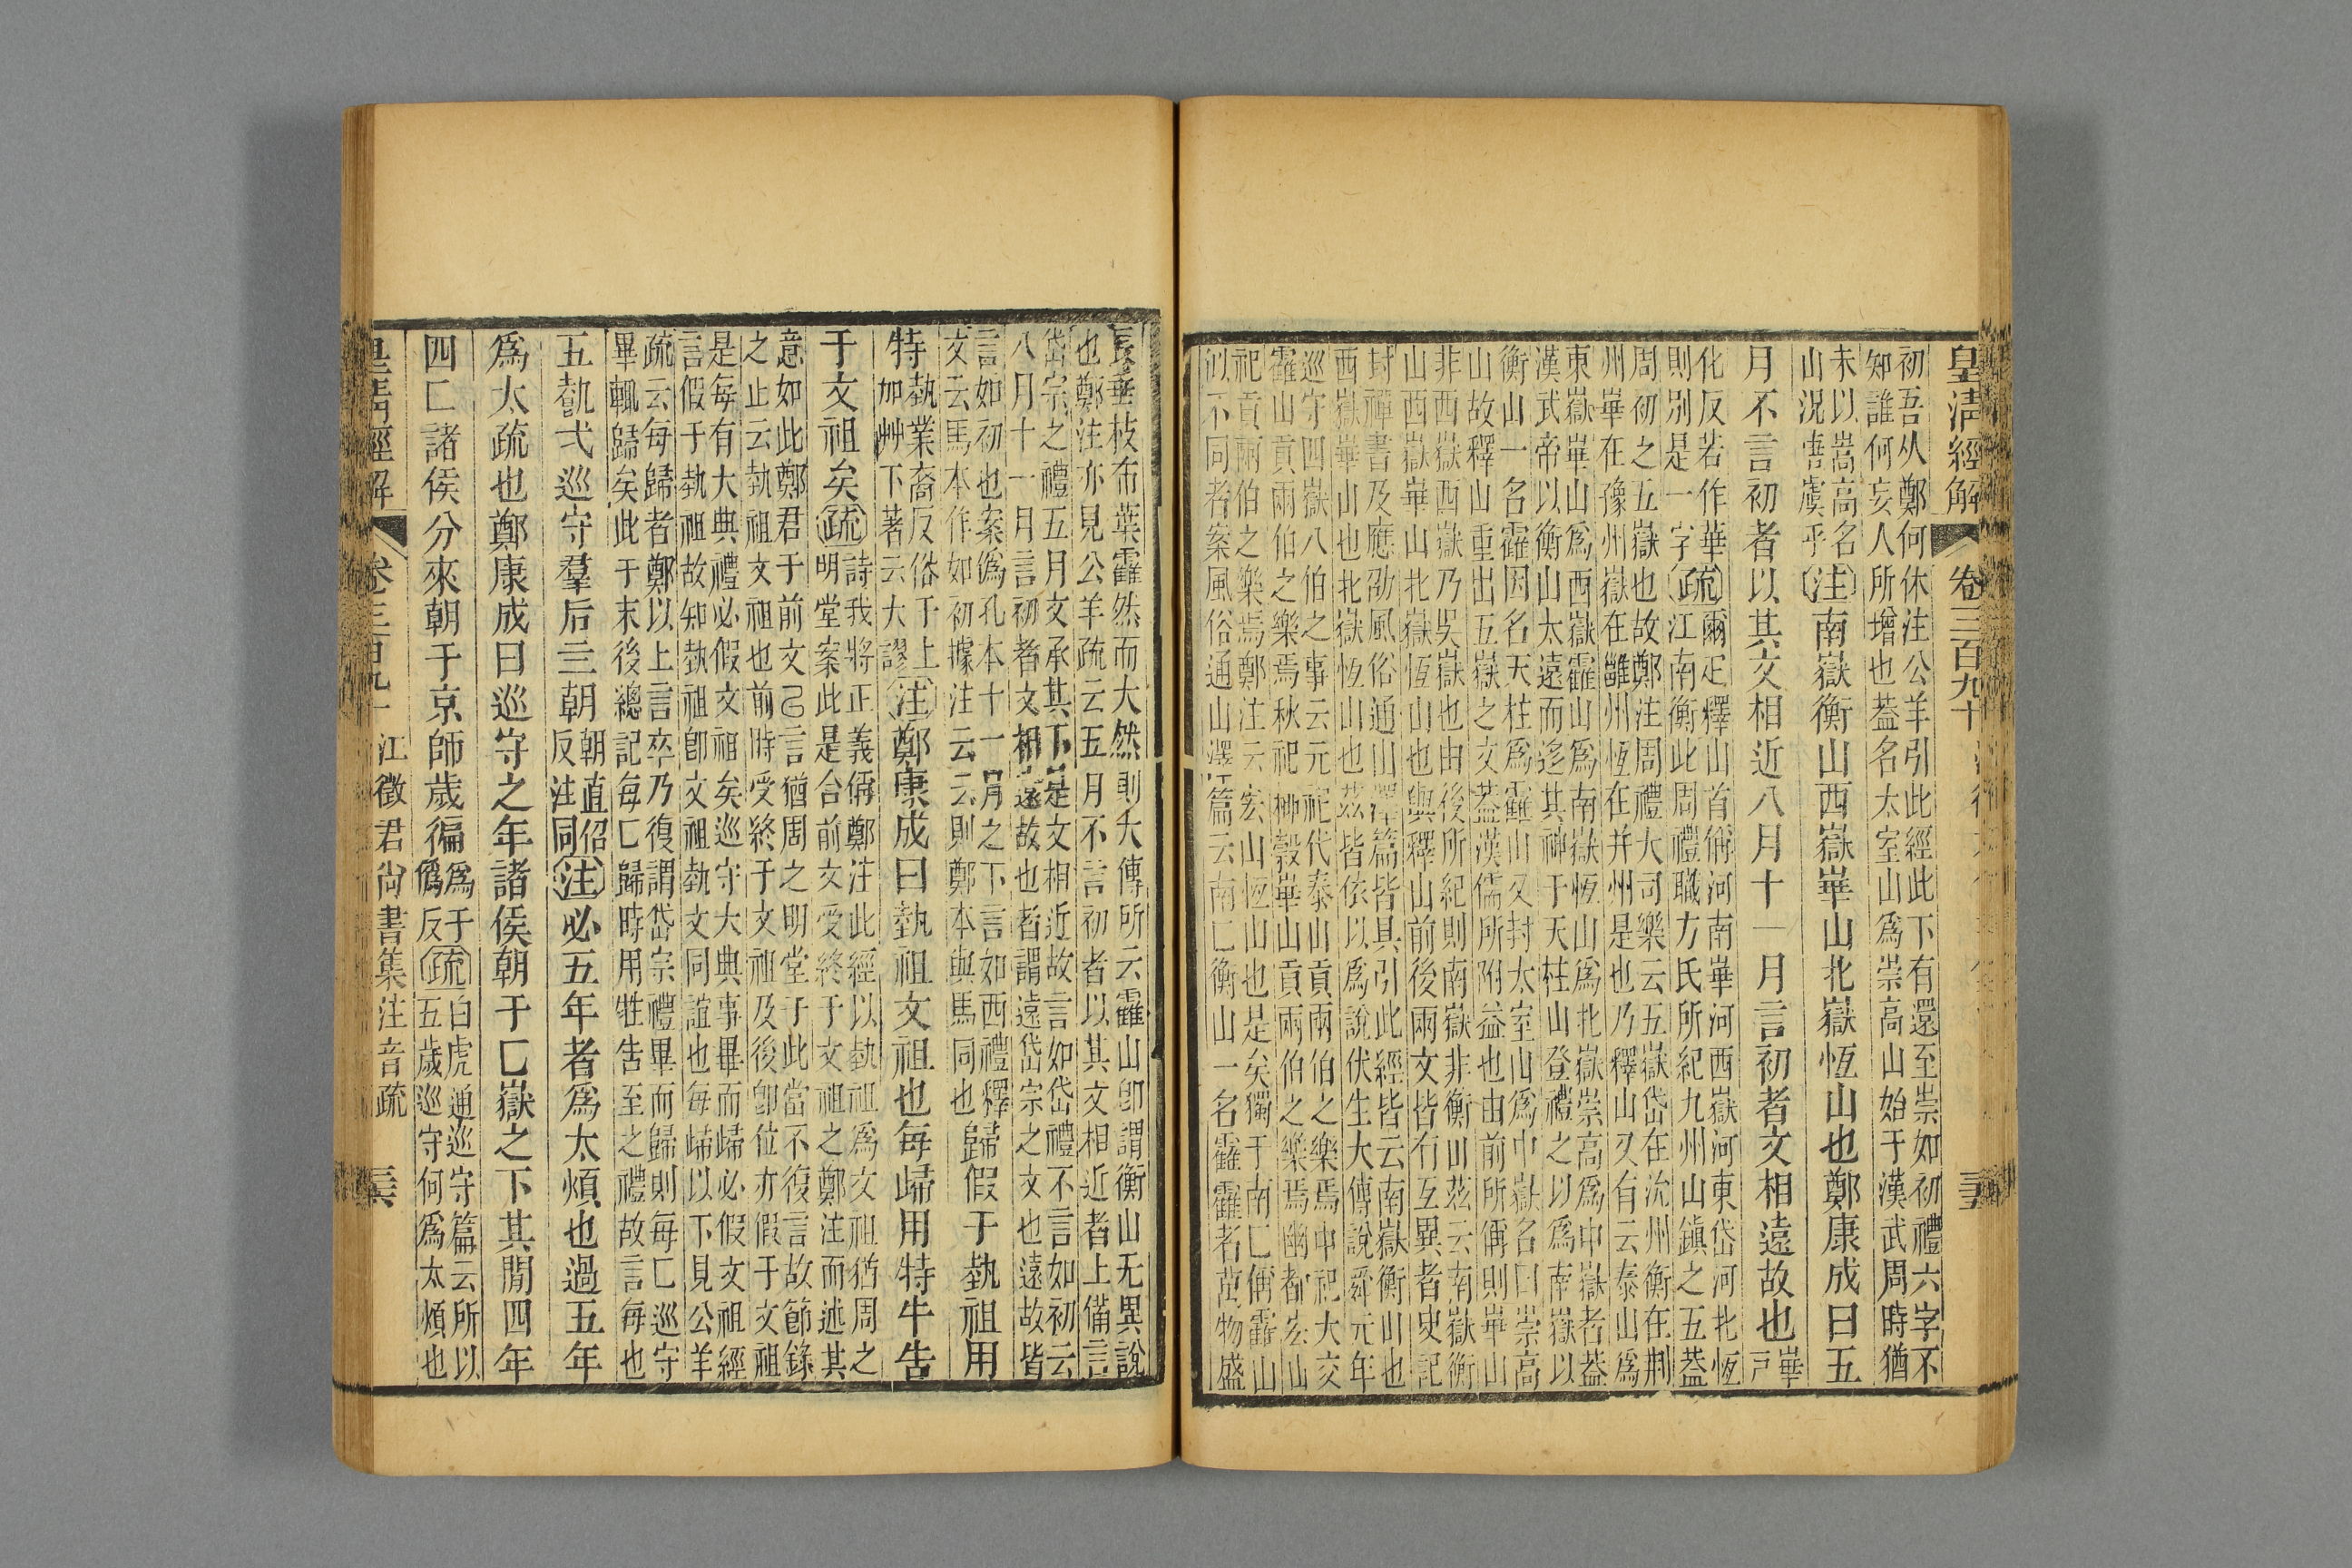 皇清經解
卷三百九十
初吾从鄭何休注公羊引此經此下有還至崇如初禮六字不
知誰何妄人所增也葢名太室山爲崇高山始于漢武周時猶
未以嵩高名
山況唐虞乎
注南嶽衡山西嶽崋山北嶽恆山也鄭康成曰五
月不言初者以其文相近八月十一月言初者文相遠故也崋戸
化反若作華
則別是一字
疏爾疋釋山首偁河南崋河西嶽河東岱河北恆
江南衡此周禮職方氏所紀九州山鎭之五葢
周初之五嶽也故鄭注周禮大司樂云五嶽岱在沇州衡在荆
州崋在豫州嶽在雝州恆在并州是也乃釋山又有云泰山爲
東嶽崋山爲西嶽霍山爲南嶽恆山爲北嶽崇高爲中嶽者葢
漢武帝以衡山太遠而迻其神于天柱山登禮之以爲南嶽以
衡山一名霍因名天柱爲霍山又封太室山爲中嶽名曰崇高
山故釋山重出五嶽之文葢漢儒所附益也由前所偁則崋山
非西嶽西嶽乃吳嶽也由後所紀則南嶽非衡山茲云南嶽衡
山西嶽崋山北嶽恆山也與釋山前後兩文皆有互異者史記
封禪書及應劭風俗通山澤篇皆具引此經皆云南嶽衡山也
西嶽崋山也北嶽恆山也茲皆依以爲說伏生大傳說舜元年
巡守四嶽八伯之事云元祀代泰山貢兩伯之樂焉中祀大交
霍山貢兩伯之樂焉秋祀柳穀崋山貢兩伯之樂焉幽都宏山
祀貢兩伯之樂焉鄭注云宏山恆山也是矣獨于南匚偁霍山
㠯不同者案風俗通山澤篇云南匚衡山一名霍霍者萬物盛
長垂枝布葉霍然而大然則大傳所云霍山卽謂衡山无異說
也鄭注亦見公羊疏云五月不言初者以其文相近者上備言
岱宗之禮五月文承其下是文相近故言如岱禮不言如初云
八月十一月言初者文相遠故也者謂遠岱宗之文也遠故皆
言如初也案僞孔本十一月之下言如西禮釋
文云馬本作如初據注云云則鄭本與馬同也
歸假于埶祖用
特埶業裔反俗于上
加艸下著云大謬
注鄭康成曰埶祖文祖也每歸用特牛告
于文祖矣疏詩我將正義偁鄭注此經以埶祖爲文祖猶周之
明堂案此是合前文受終于文祖之鄭注而述其
意如此鄭君于前文㠯言猶周之明堂于此當不復言故節錄
之止云埶祖文祖也前時受終于文祖及後卽位亦假于文祖
是每有大典禮必假文祖矣巡守大典事畢而歸必假文祖經
言假于埶祖故知埶祖卽文祖埶文同誼也每歸以下見公羊
疏云每歸者鄭以上言卒乃復謂岱宗禮畢而歸則每匚巡守
畢輒歸矣此于末後總記每匚歸時用牲告至之禮故言每也
五𡻕弌巡守羣后亖朝朝直侶
反注同
注必五年者爲太煩也過五年
爲太疏也鄭康成曰巡守之年諸侯朝于匚嶽之下其閒四年
四匚諸侯分來朝于京師歲徧爲于
僞反
疏白虎通巡守篇云所以
五歲巡守何爲太煩也
皇淸經解
卷三百九十
江徵君尙書集注音疏